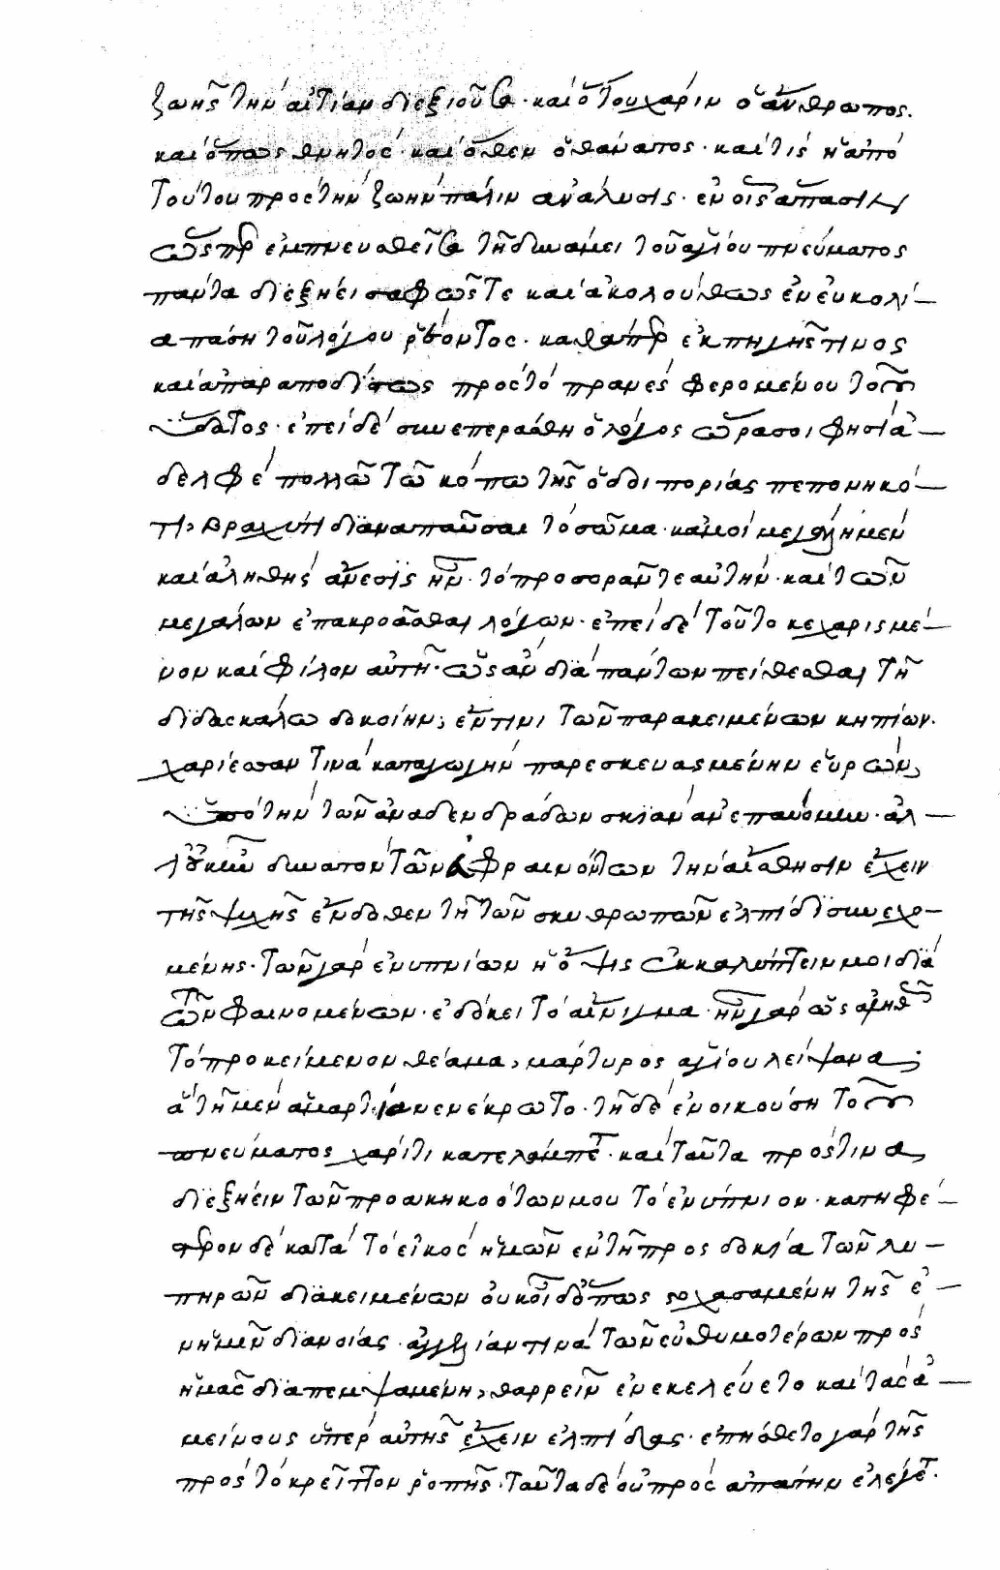 ζωῆς τὴν αἰτίαν διεξιοῦσα· καὶ ὅτου χάριν ὁ ἄνθρωπος.
καὶ ὅπως θνητὸς· καὶ ὅθεν ὁ θάνατος· καὶ τίς ἡ ἀπὸ
τούτου πρὸς τὴν ζωὴν πάλιν ἀνάλυσις· ἐν οἷς ἅπασιν
ὥσπερ ἐμπνευσθεῖσα τῇ δυνάμει τοῦ ἁγίου πνεύματος
πάντα διεξῄει σαφῶς τε καὶ ἀκολούθως ἐν εὐκολί–
ᾳ πάσῃ τοῦ λόγου ῥέοντος· καθάπερ ἐκ πηγῆς τινος
καὶ ἀπαραποδίστως πρὸς τὸ πρανὲς φερομένου τοῦ
ὕδατος· ἐπεὶ δὲ συνεπεράσθη ὁ λόγος ὥρα σοι φησὶ ἀ–
δελφὲ πολλῷ τῷ κόπῳ τῆς ὁδοιπορίας πεπονηκό–
τι, βραχύ τι διαναπαῦσαι τὸ σῶμα· κἀμοὶ μεγάλη μὲν
καὶ ἀληθὴς ἄνεσις ἦν· τὸ προσορᾶν τε αὐτὴν· καὶ τῶν
μεγάλων ἐπακροᾶσθαι λόγων· ἐπεὶ δὲ τοῦτο κεχαρισμέ–
νον καὶ φίλον αὐτῇ· ὡς ἂν διὰ πάντων πείθεσθαι τῇ
διδασκάλῳ δοκοίην, ἔν τινι τῶν παρακειμένων κηπίων·
χαρίεσσάν τινα καταγωγὴν παρεσκευασμένην εὑρὼν,
ὑπὸ τὴν τῶν ἀναδενδράδων σκιὰν ἀνεπαυόμην· ἀλ–
λ' οὐκ ἦν δυνατὸν τῶν εὐφραινόντων τὴν αἴσθησιν ἔχειν
τῆς ψυχῆς ἔνδοθεν τῇ τῶν σκυθρωπῶν ἐλπίδι συνεχο–
μένης· τῶν γὰρ ἐνυπνίων ἡ ὄψις ἐκκαλύπτειν μοι διὰ
τῶν φαινομένων· ἐδόκει τὸ αἴνιγμα· ἦν γὰρ ὡς ἀληθῶς
τὸ προκείμενον θέαμα, μάρτυρος ἁγίου λείψανα,
ἃ τῇ μὲν ἁμαρτίᾳ νενέκρωτο· τῇ δὲ ἐνοικούσῃ τοῦ
πνεύματος χάριτι κατελάμπετο· καὶ ταῦτα πρός τινα,
διεξῄειν τῶν προακηκοότων μου τὸ ἐνύπνιον· κατηφέ–
στερον δὲ κατὰ τὸ εἰκὸς ἡμῶν ἐν τῇ προσδοκίᾳ τῶν λυ–
πηρῶν διακειμένων οὐκ οἶδ' ὅπως στοχασαμένη τῆς ἐ–
ν ἡμῖν διανοίας· ἀγγελίαν τινὰ τῶν εὐθυμοτέρων πρὸς
ἡμᾶς διαπεμψαμένη, θαρρεῖν ἐνεκελεύετο καὶ τὰς ἀ–
μείνους ὑπὲρ αὐτῆς ἔχειν ἐλπίδας· ἐπῄσθετο γὰρ τῆς
πρὸς τὸ κρεῖττον ῥοπῆς· ταῦτα δὲ οὐ πρὸς ἀπάτην ἐλέγετο·